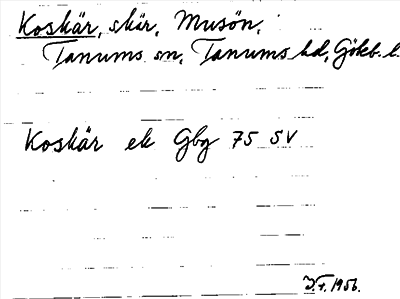 Koskär, skär, Musön,
Tanums sn, Tanums hd, Gökb. l.
Koskär ek Gbg 75 SV
1956.